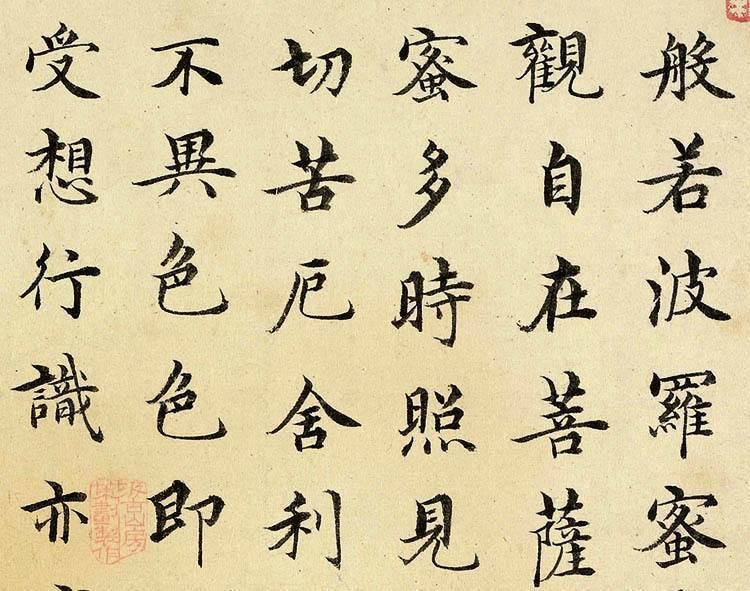 般若波羅蜜
觀自在菩薩
蜜多時照見
切苦厄舍利
不異色色即
受想行識亦